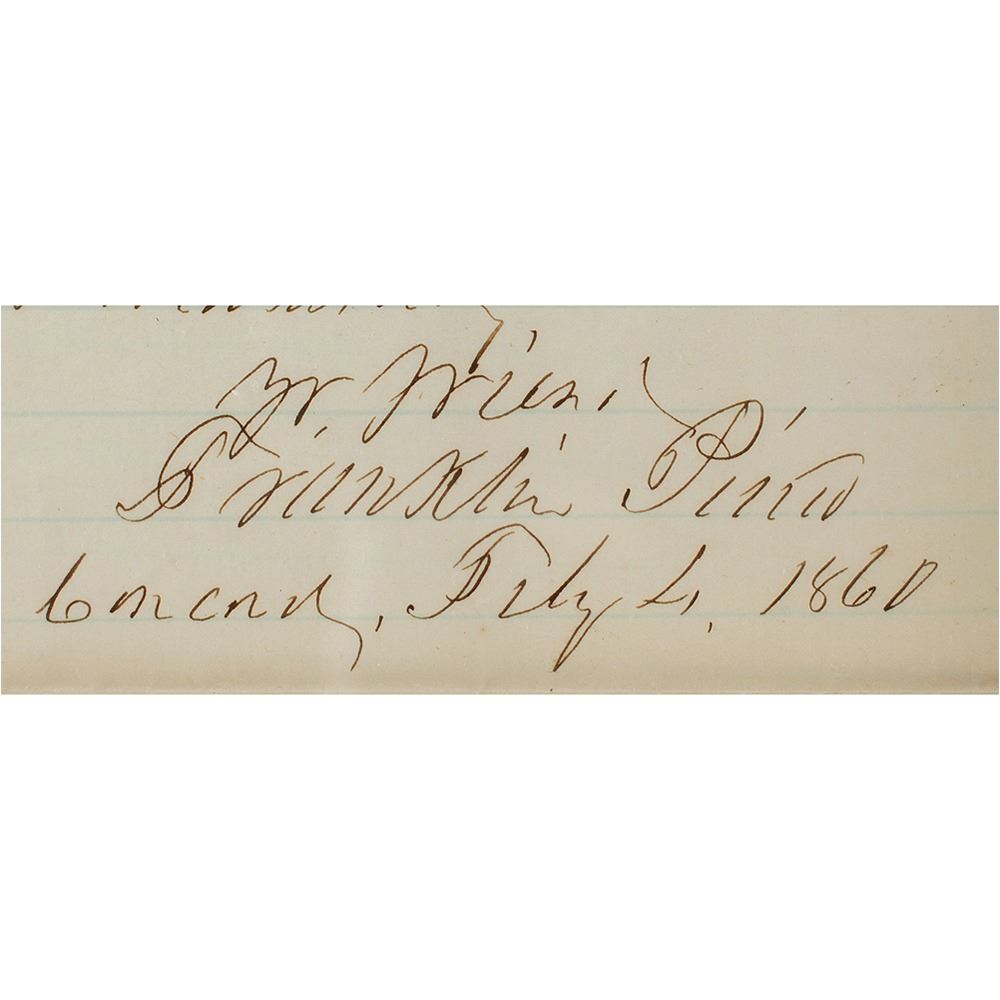 Yr. friend
Franklin Pierce
Concord, Feby 2, 1860